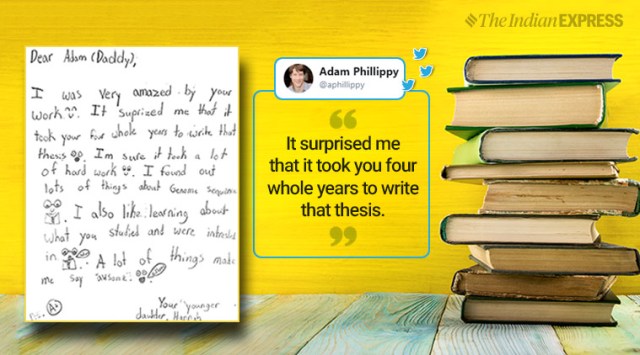 The Indian EXPRESS
Dear Adam (Daddy),
I was very amazed by your
work. It suprized me that it
took your four whole years to write that
thesis. I'm sure it took a lot
of hard work. I found out
lots of things about Genome
I also like learning about
what you studied and were
in. A lot of things made
me say "awsome".
Your "younger
Hannah
A+
Adam Phillippy
@aphillippy
It surprised me
that it took you four
whole years to write
that thesis.